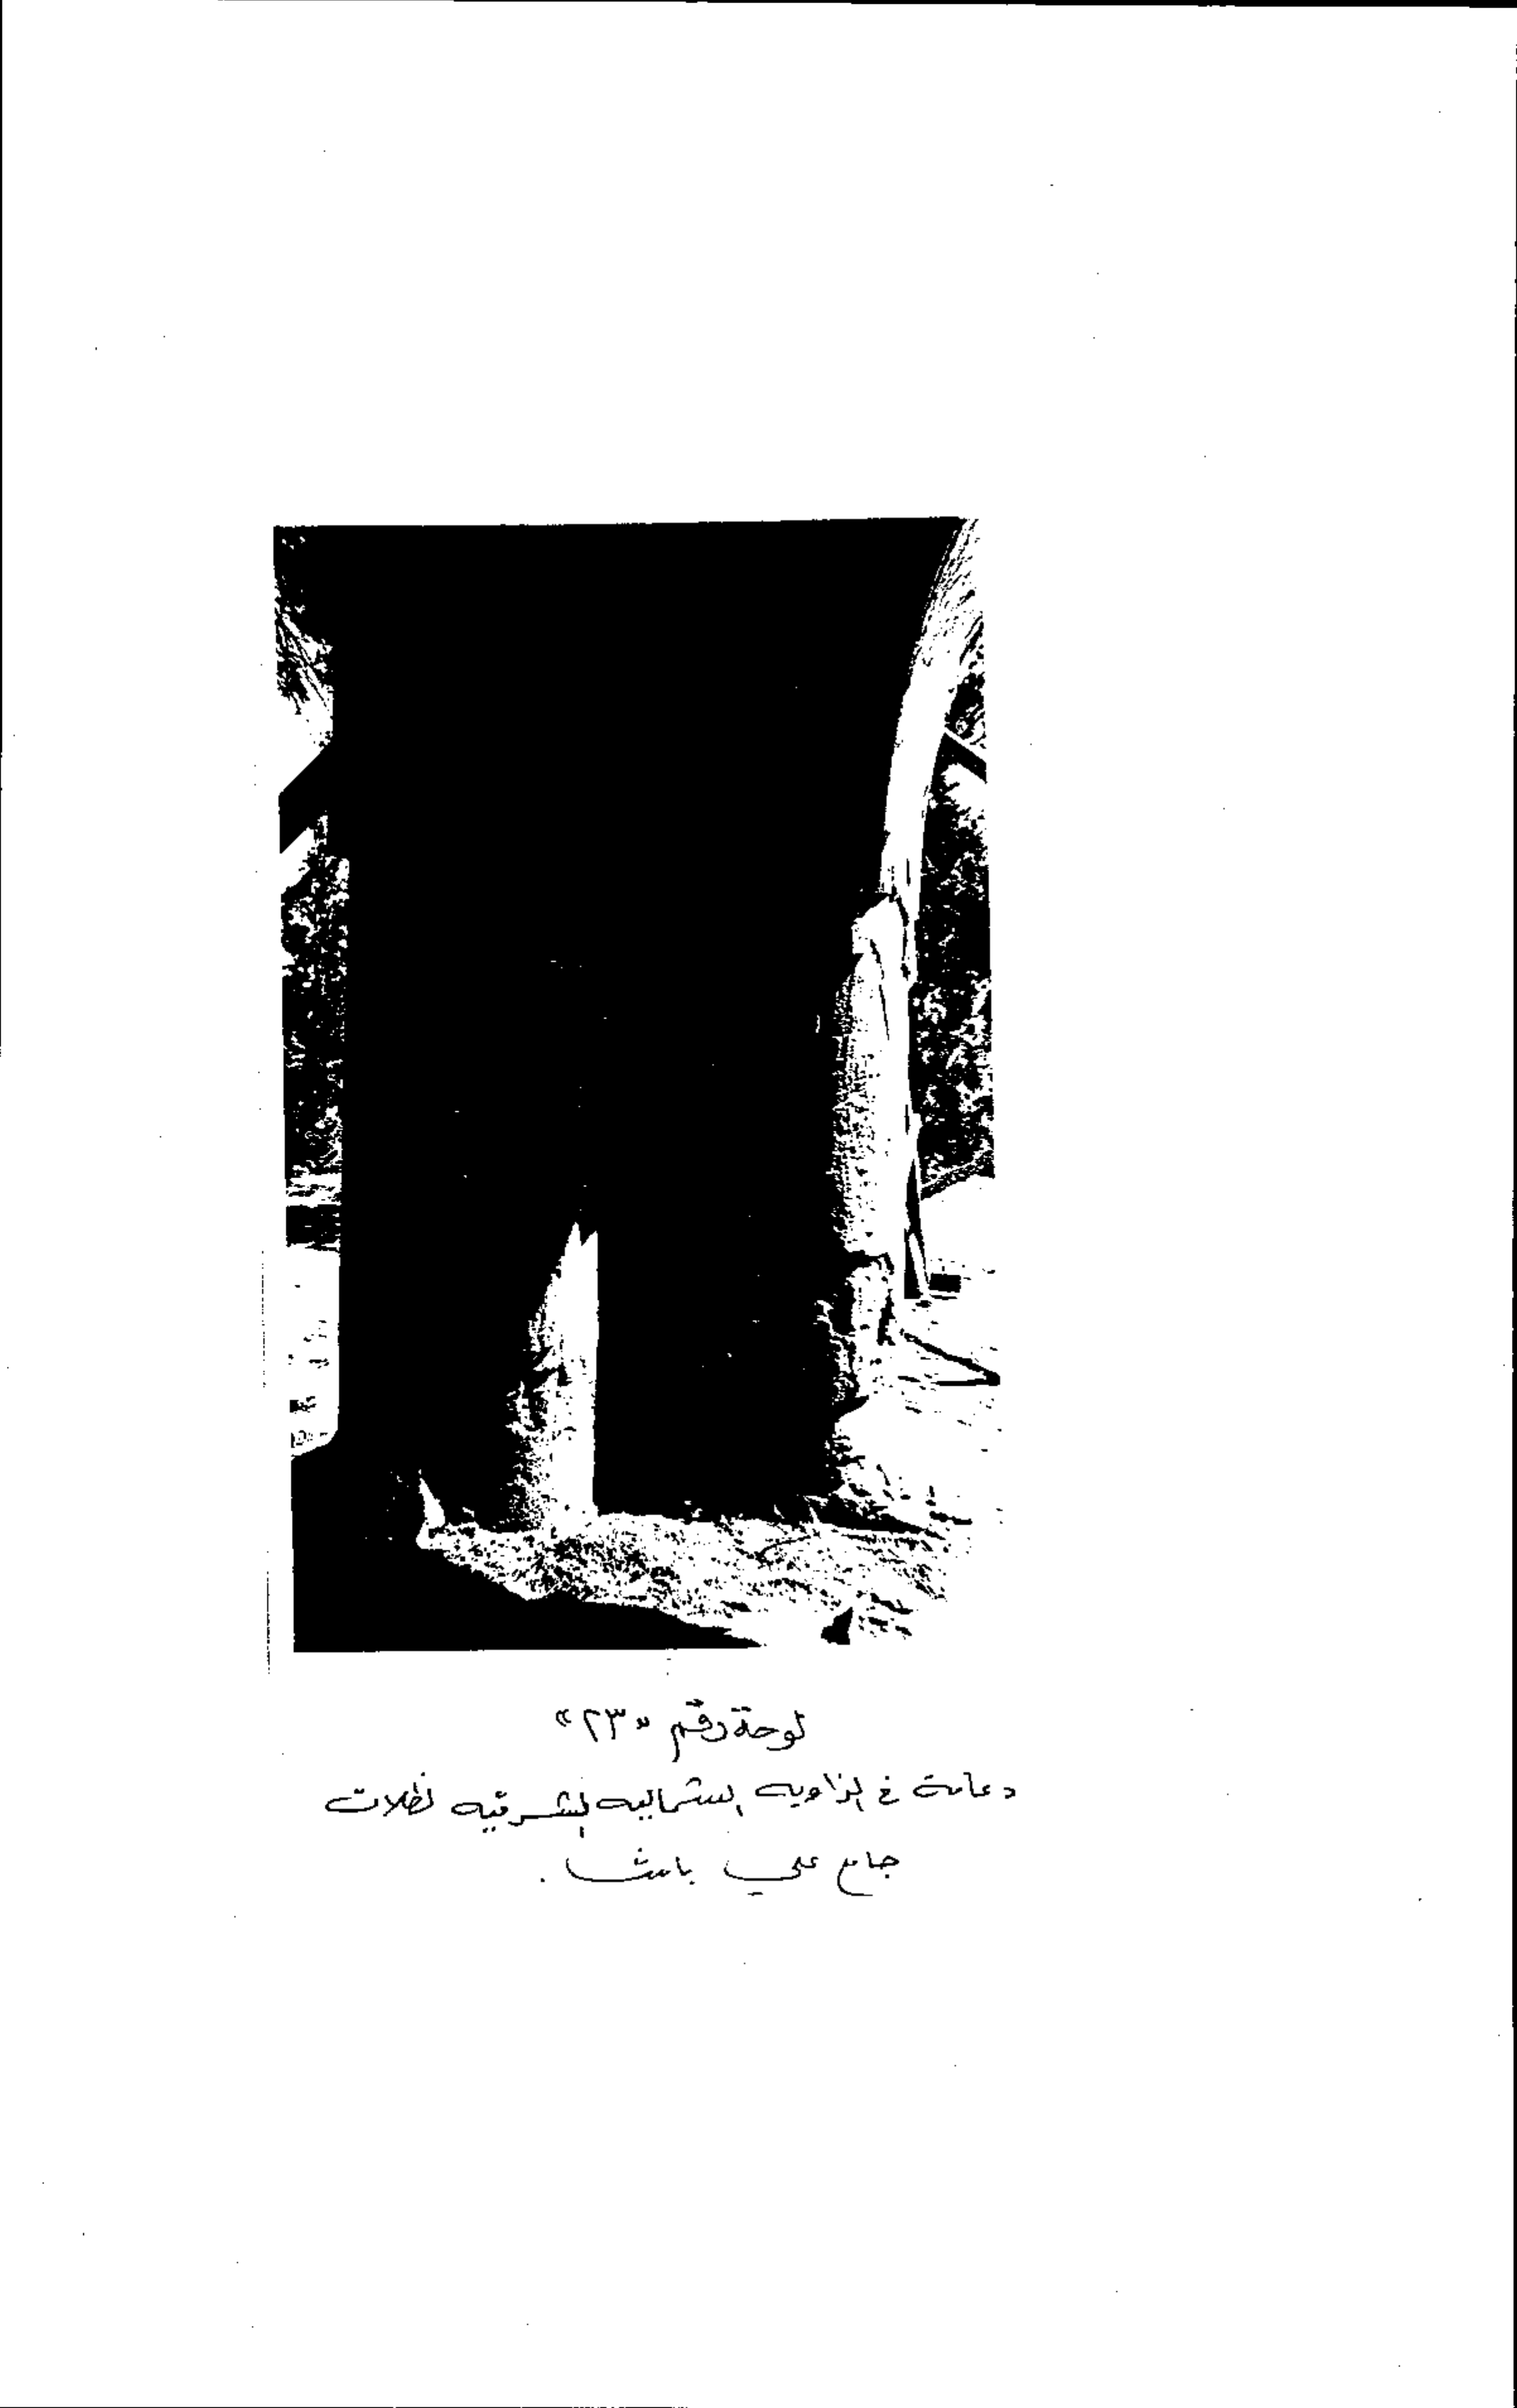 لوحة رقم «٢٣»
دعامة في الزاوية الشمالية الشرقية لظلات
جامع علي باشا .